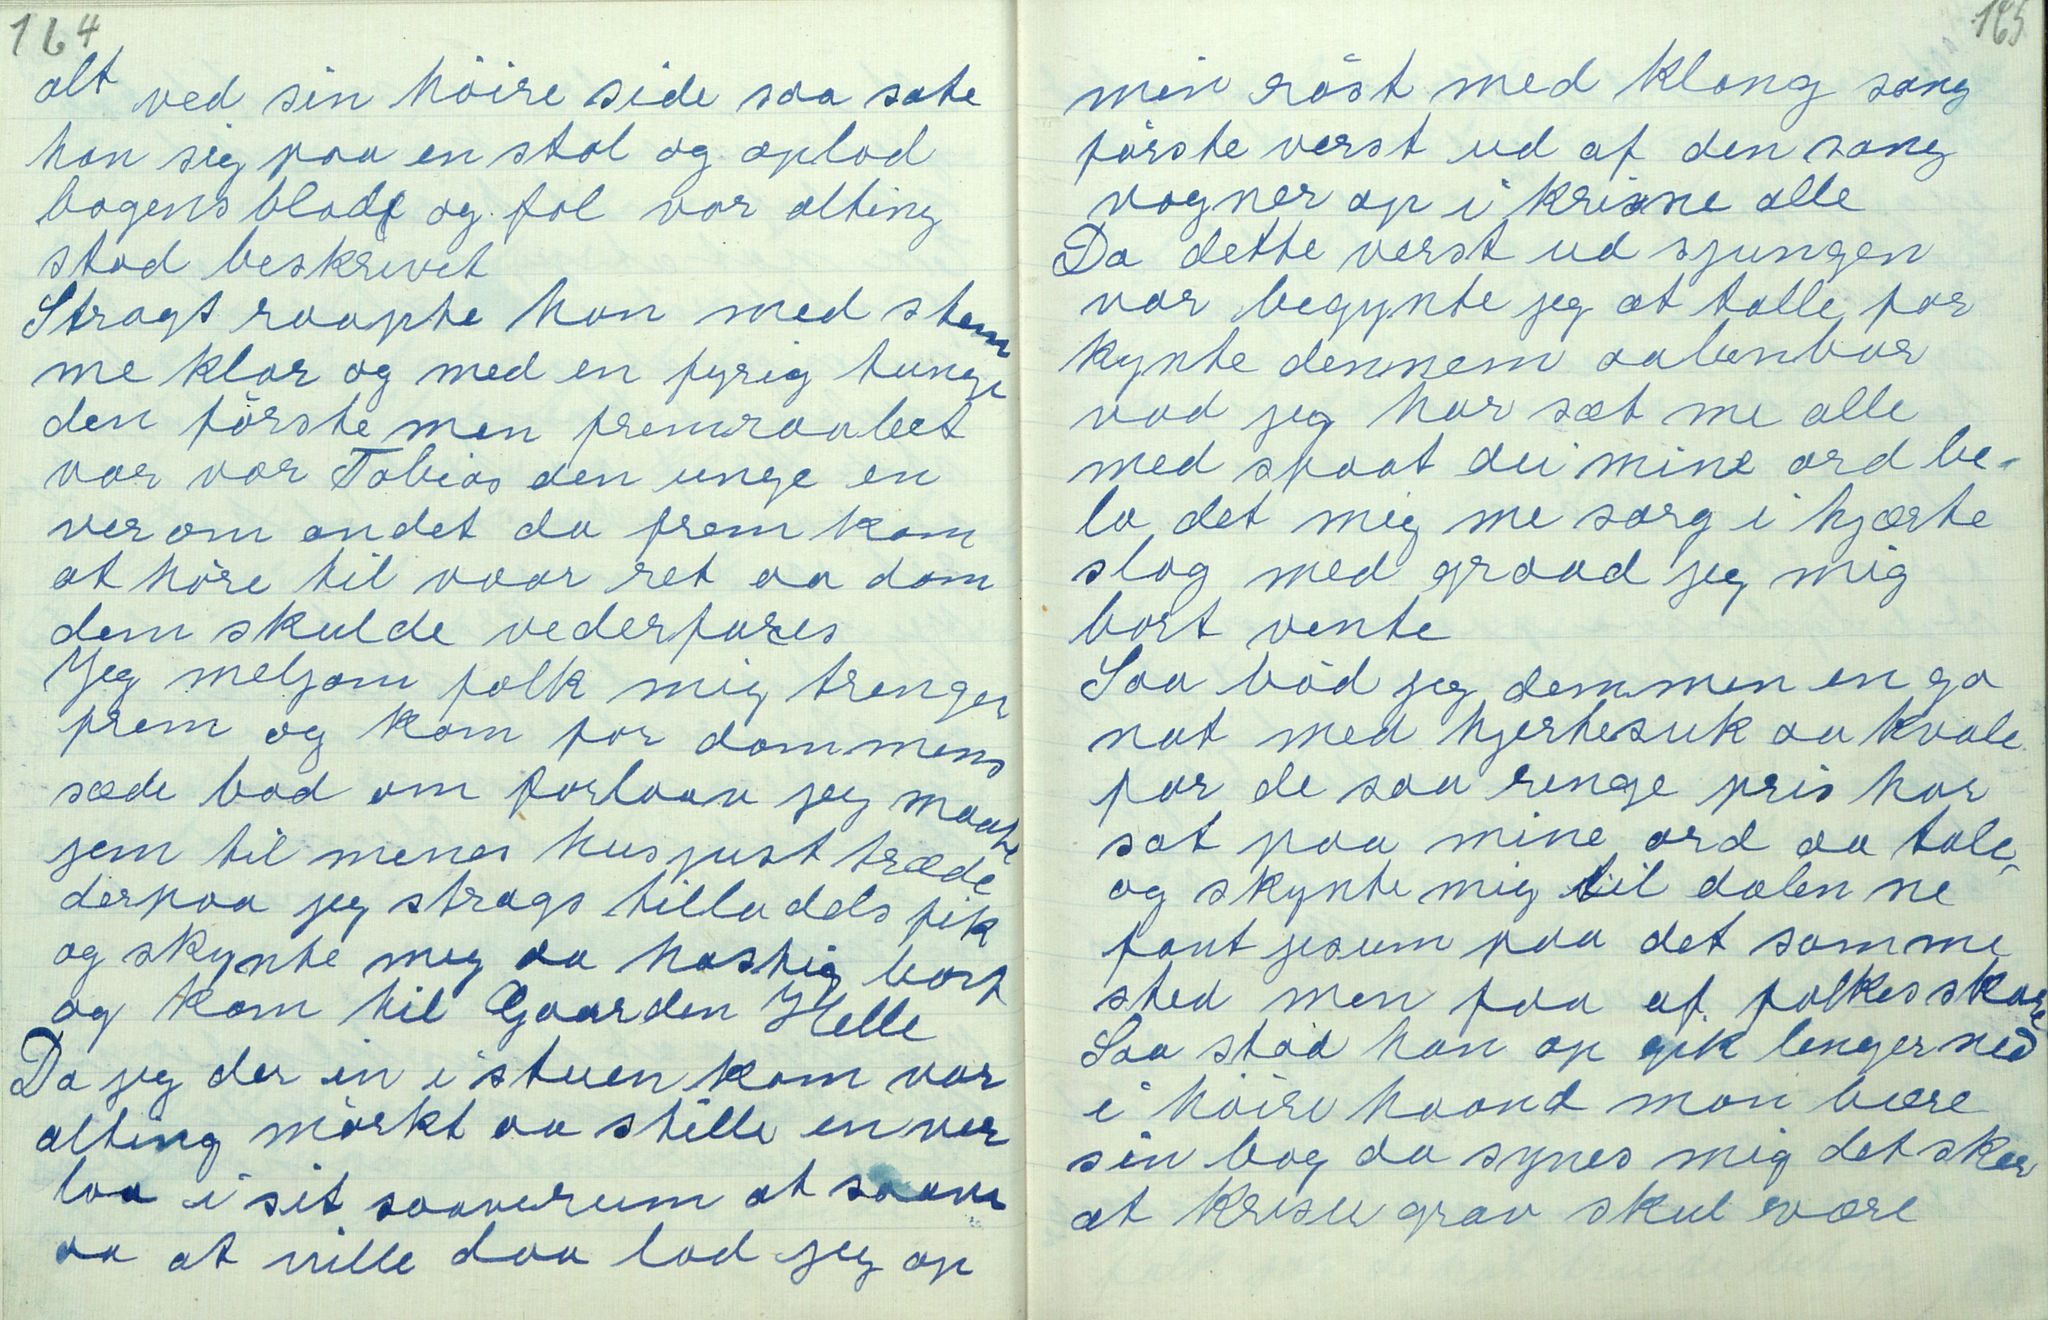 164
alt ved sin höire side saa sate
han sig paa en stol og oplod
bogens blode og fol var alting
stod beskrivet
Stragt raapte han med stem
me klar og med en fyrig tunge
den förste men fremraabet
var var Tobias den unge en
ver om andet da frem kom
at höre til vaar ret aa dom
dem skulde vederfares
Jeg meljom folk mig trenger
frem og kom for dommens
sæde bad om forlaav jeg maate
jem til menes hus just træde
derpaa jeg strags tilladels fik
og skynte mig aa hastig bort
og kom til Gaarden Helle
Da jeg der in i stuen kom var
alting mörkt aa stille en ver
laa i sit saaverum at saave
aa at ville daa lod jeg op
165
min röst med klang sang
förste verst ud af den sang
vagner op i krisne alle
Da dette verst ud sjungen
var begynte jeg at talle for
kynte dennem aabenbar
vad jeg har sæt me alle
med spaat dei mine ord be-
lo det mig me sorg i hjærte
slog med graad jeg mig
bort vente
Saa böd jeg demmen en go
nat med hjertesuk aa kvale
for de saa renge pris har
sat paa mine ord aa tale
og skynte mig til dalen ne
fant jesum paa det samme
sted men faa af folkes skare
Saa stod han op gik lenger ned
i höire haand mon bære
sin bog da synes mig det skeer
at krisu grav skul være